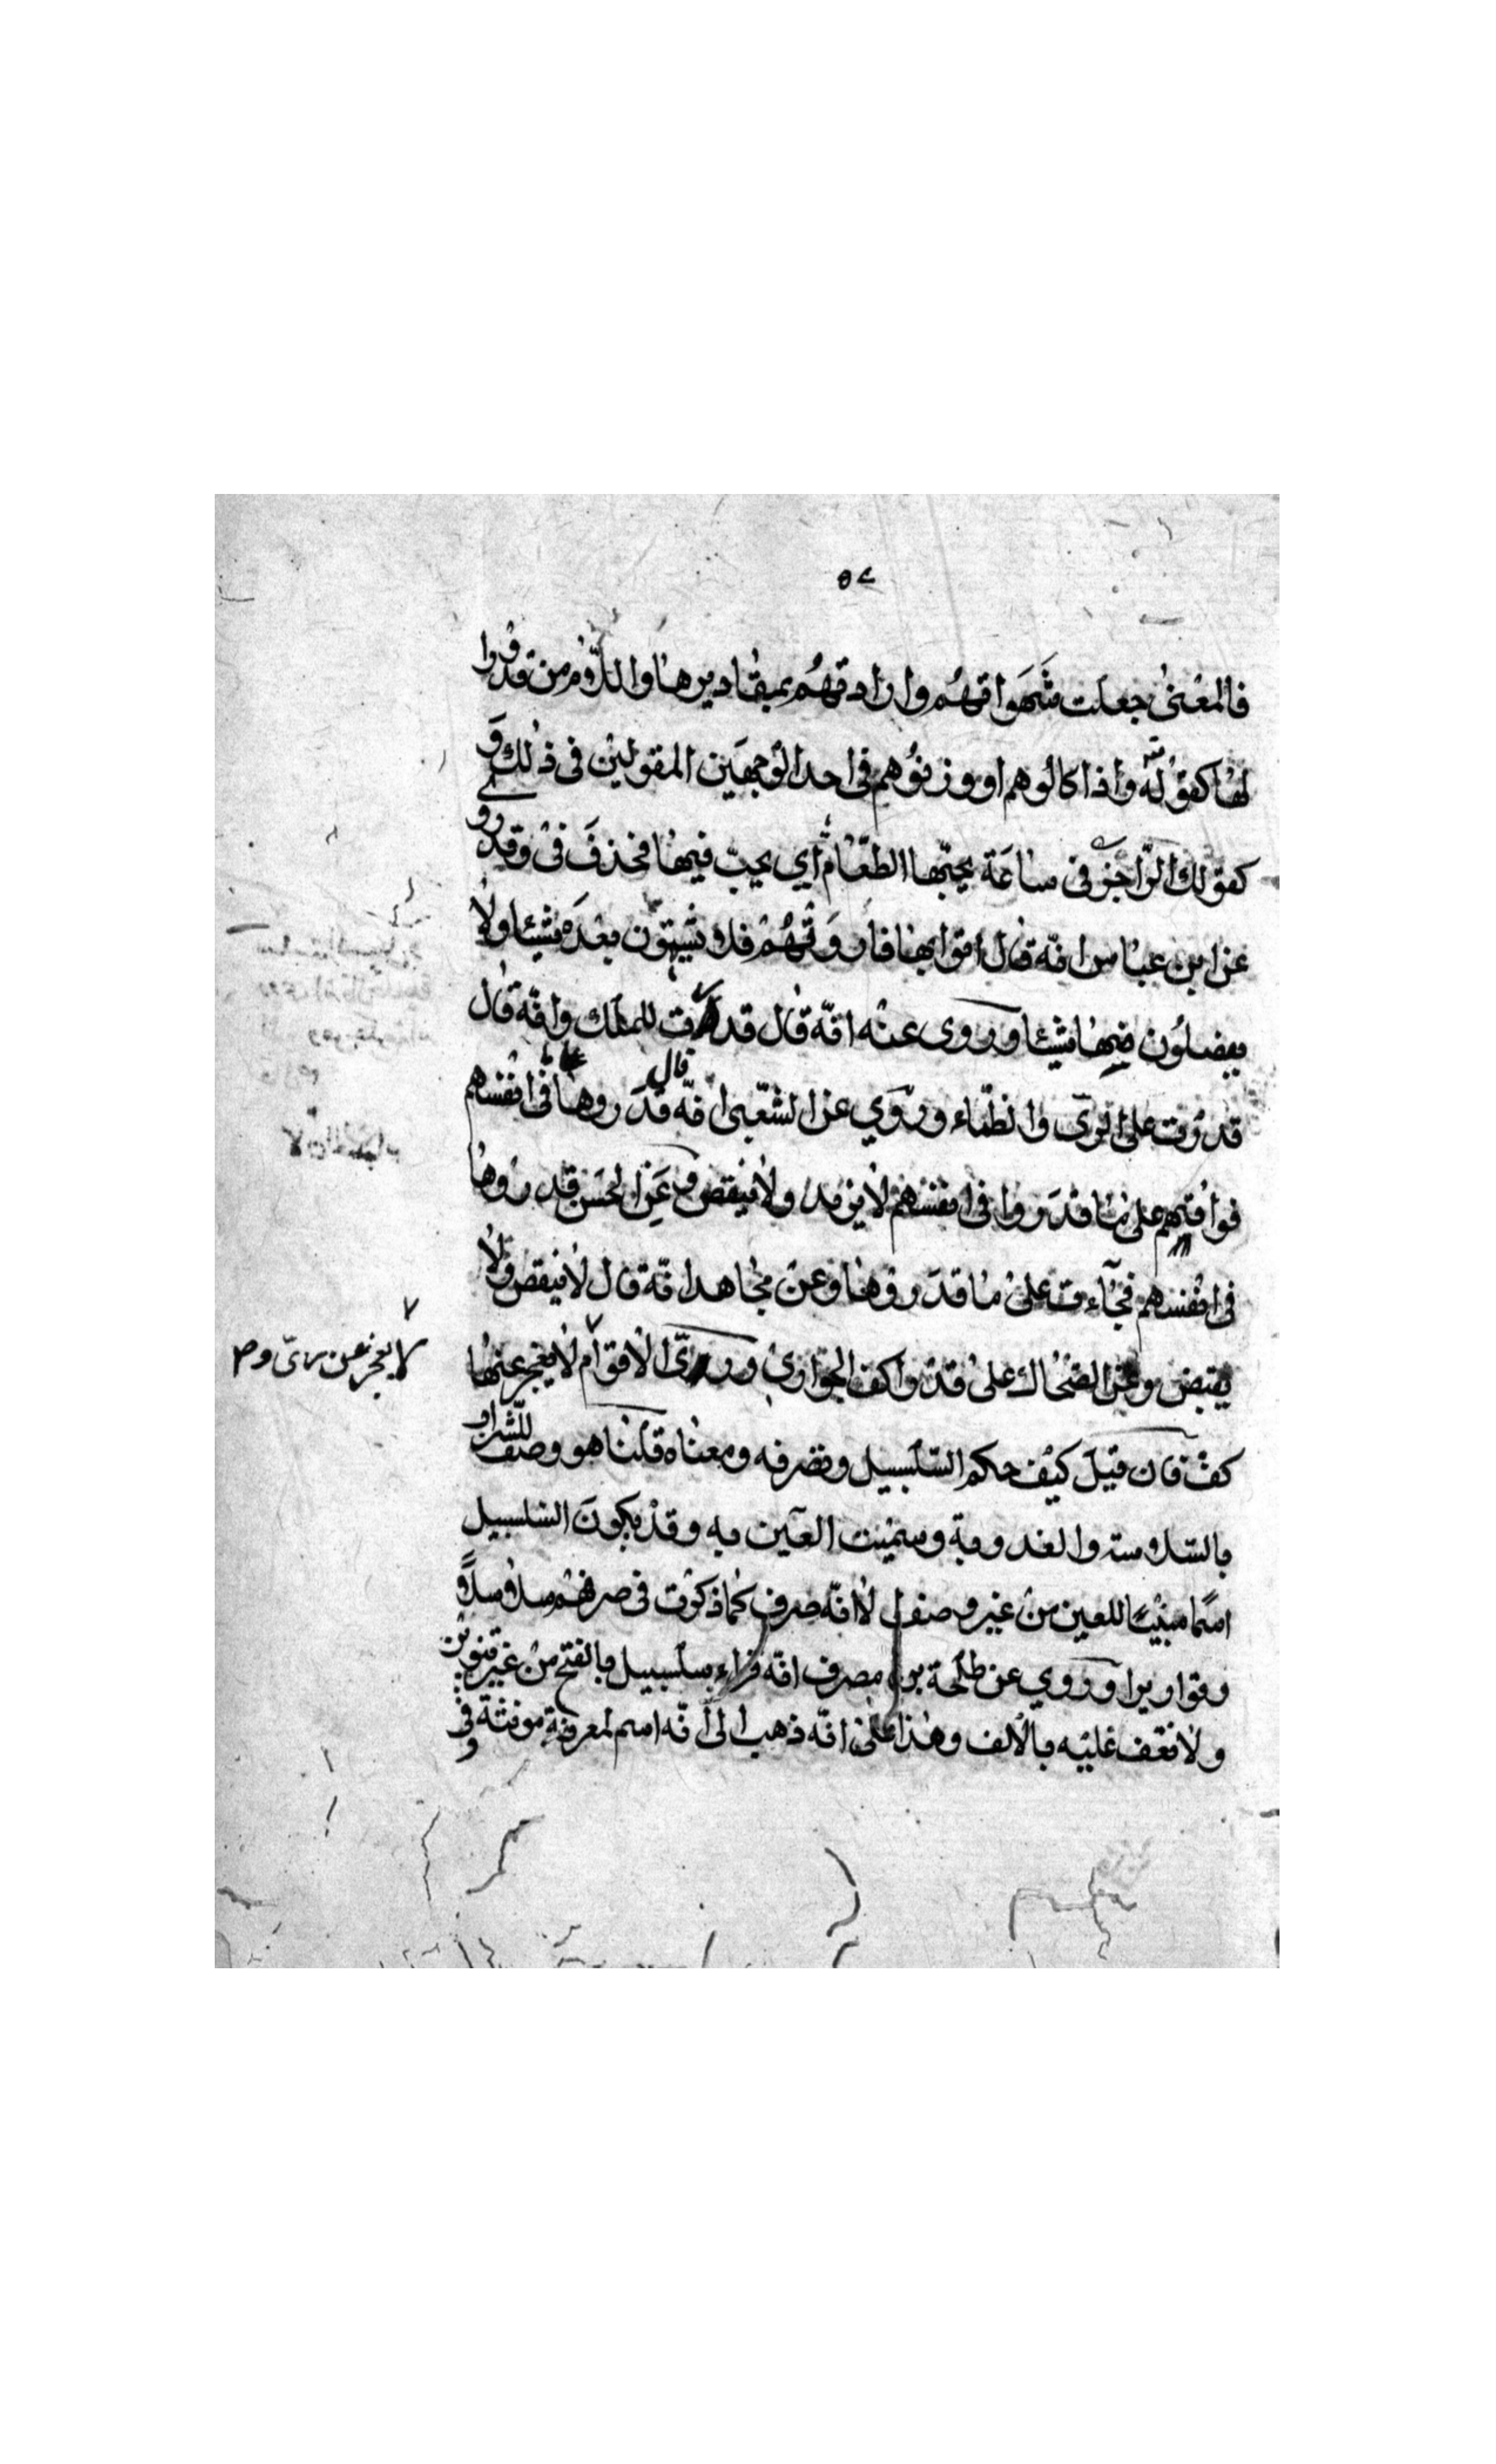 ٥٤
فالمعنى جعلت شهواتهم وارادتهم بمقاديرها واللام من قدروا
لها كقوله واذا كالوهم او وزنوهم في احد الوجهين المقولين في ذلك و
كقولك الراجز في ساعة يحبها الطعام أي يحب فيها فحذف في وقد روى
عن ابن عباس انه قال اتوا بها فاروتهم فلا يشتهون بعده شيئا ولا
يفضلون فيها شيئا وروى عنه انه قال قدرت للملك وانه قال
قدرت على الري والظماء وروي عن الشعبي انه قال قدروها في انفسهم
فواقتهم على ما قدروا في انفسهم لا يزيد ولا ينقص وعن الحسن قدروها
في انفسهم فجاءت على ما قدروها وعن مجاهد انه قال لا ينقص ولا
يقبض وعن الضحاك على قدر اكف الجواري وري الاقوام لا يعجز عنها
لا يعجز عن ري و
كف فان قيل كيف حكم السلسبيل وتصرفه ومعناه قلنا هو وصف للشراب
بالسلاسة والعذوبة وسميت العين به وقد يكون السلسبيل
اسما مبنيا للعين من غير وصف الا انه صرف كما ذكرت في صرفهم سلاسلا
وقواريرا وروي عن طلحة بن مصرف انه قراء بسلسبيل بالفتح من غير تنوين
ولا نقف عليه بالالف وهذا على انه ذهب الى انه اسم لمعرفة مونثة وفي